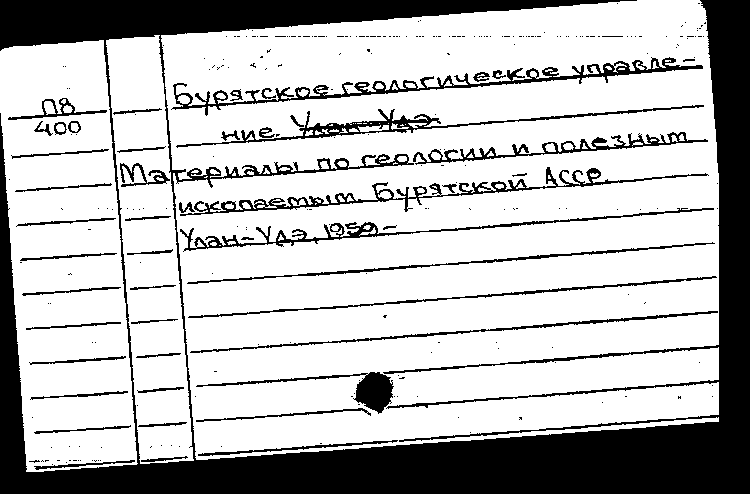 П8
400
Бурятское геологическое управле-
ние. Улан-Удэ.
Материалы по геологии и полезным
ископаемым. Бурятской АССР.
Улан-Удэ, 1959-